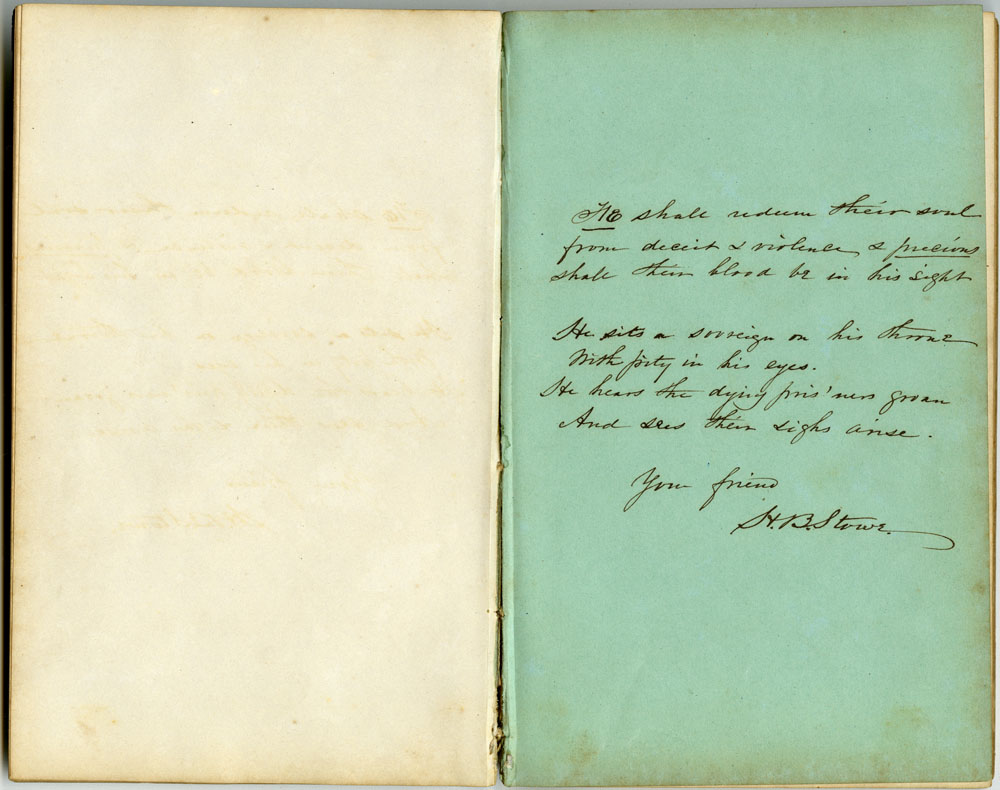 HE shall redeem their soul
from deceit & violence & precious
shall their blood be in his sight
He sits a sovreign on his throne
With pity in his eyes.
He hears the dying pris'ners groan
And sees their sighs arise.
Your friend
H. B. Stowe.